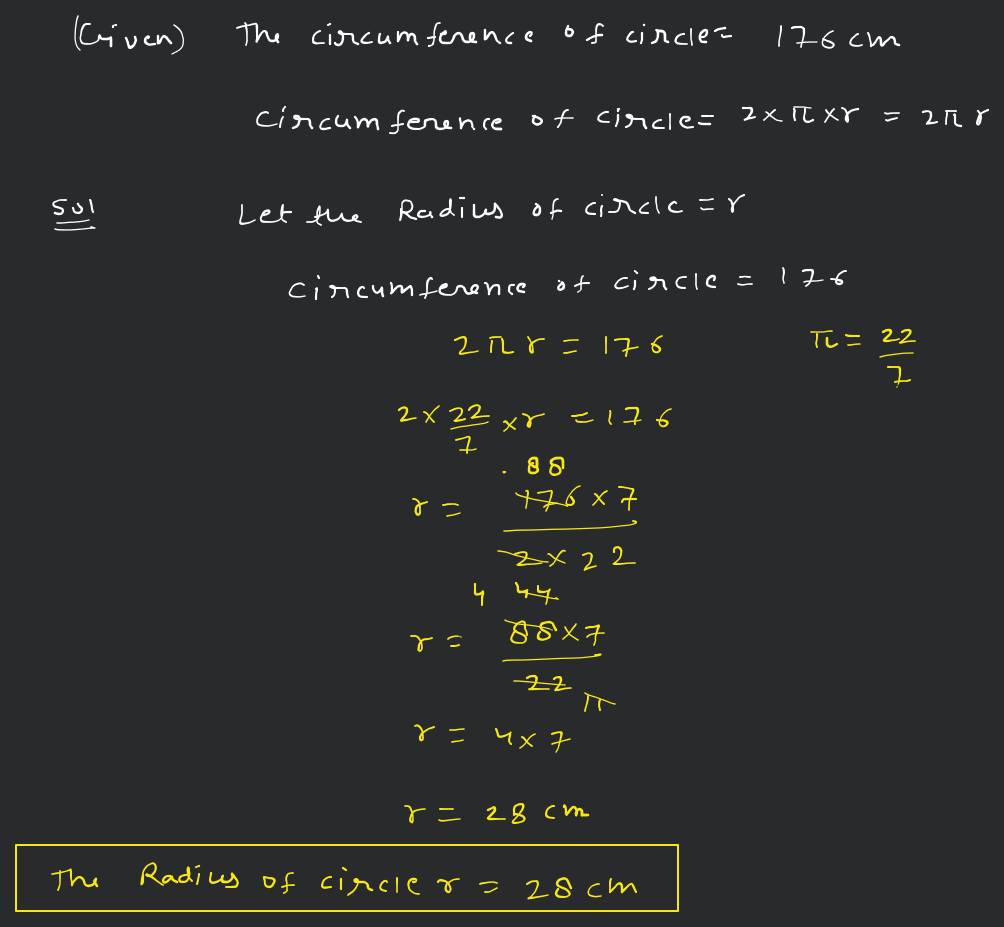 (Given) The circumference of circle = 176 cm
circumference of circle = 2 × π × r = 2πr
Sol Let the Radius of circle = r
circumference of circle = 176
2πr = 176 π = 22/7
2 × 22/7 × r = 176
88
r = 176 × 7 / 2 × 22
4 44
r = 88 × 7 / 22
11
r = 4 × 7
r = 28 cm
The Radius of circle r = 28 cm